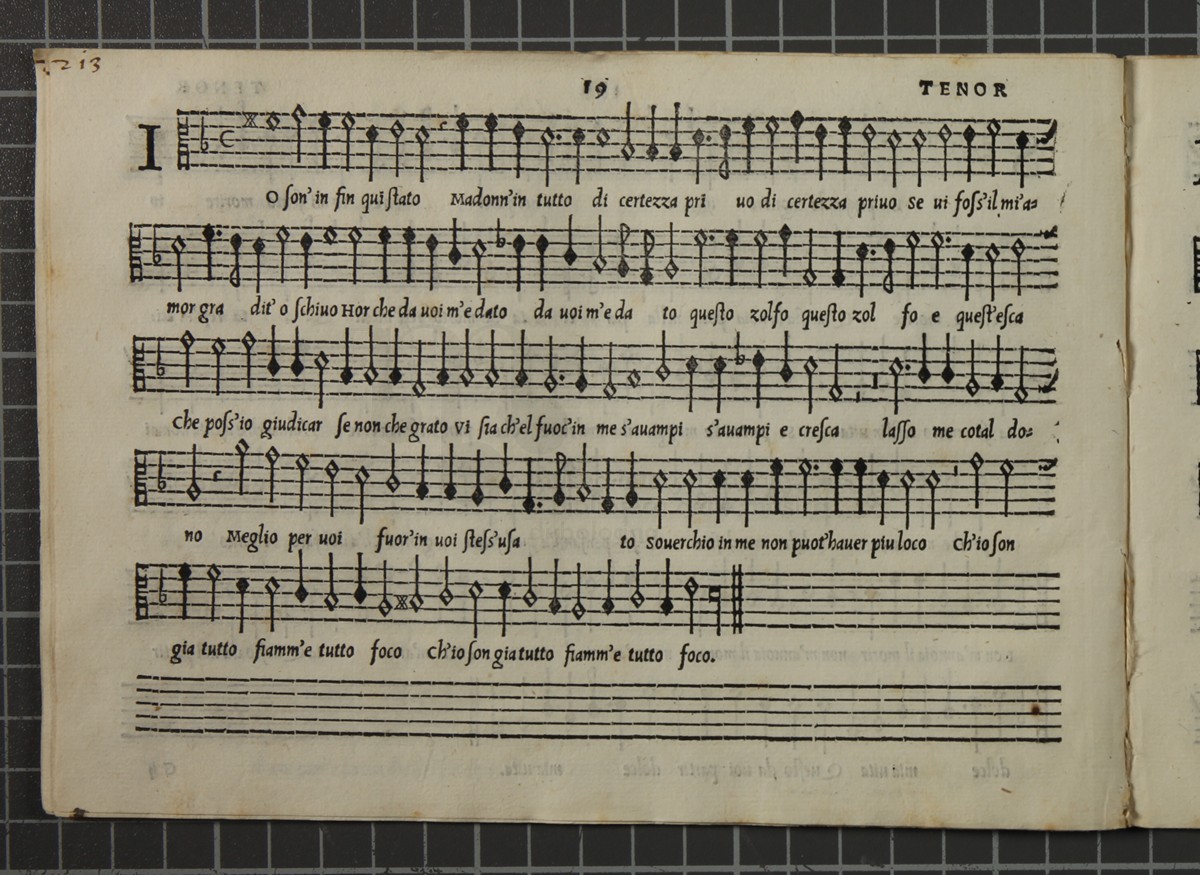 213
19 TENOR
I
O son' in fin qui stato Madonn'in tutto di certezza pri uo di certezza priuo Se ui foss'il mi'a=
mor gra dit' o schiuo Hor che da uoi m'e dato da uoi m'e da to questo zolfo questo zol fo e quest'esca
Che poss'io giudicar se non che grato Vi sia ch'el fuoc'in me s'auampi s'auampi e cresca lasso me cotal do=
no Meglio per uoi fuor'in uoi stess'usa to Souerchio in me non puot'hauer piu loco Ch'io son
gia tutto fiamm'e tutto foco Ch'io son gia tutto fiamm'e tutto foco.